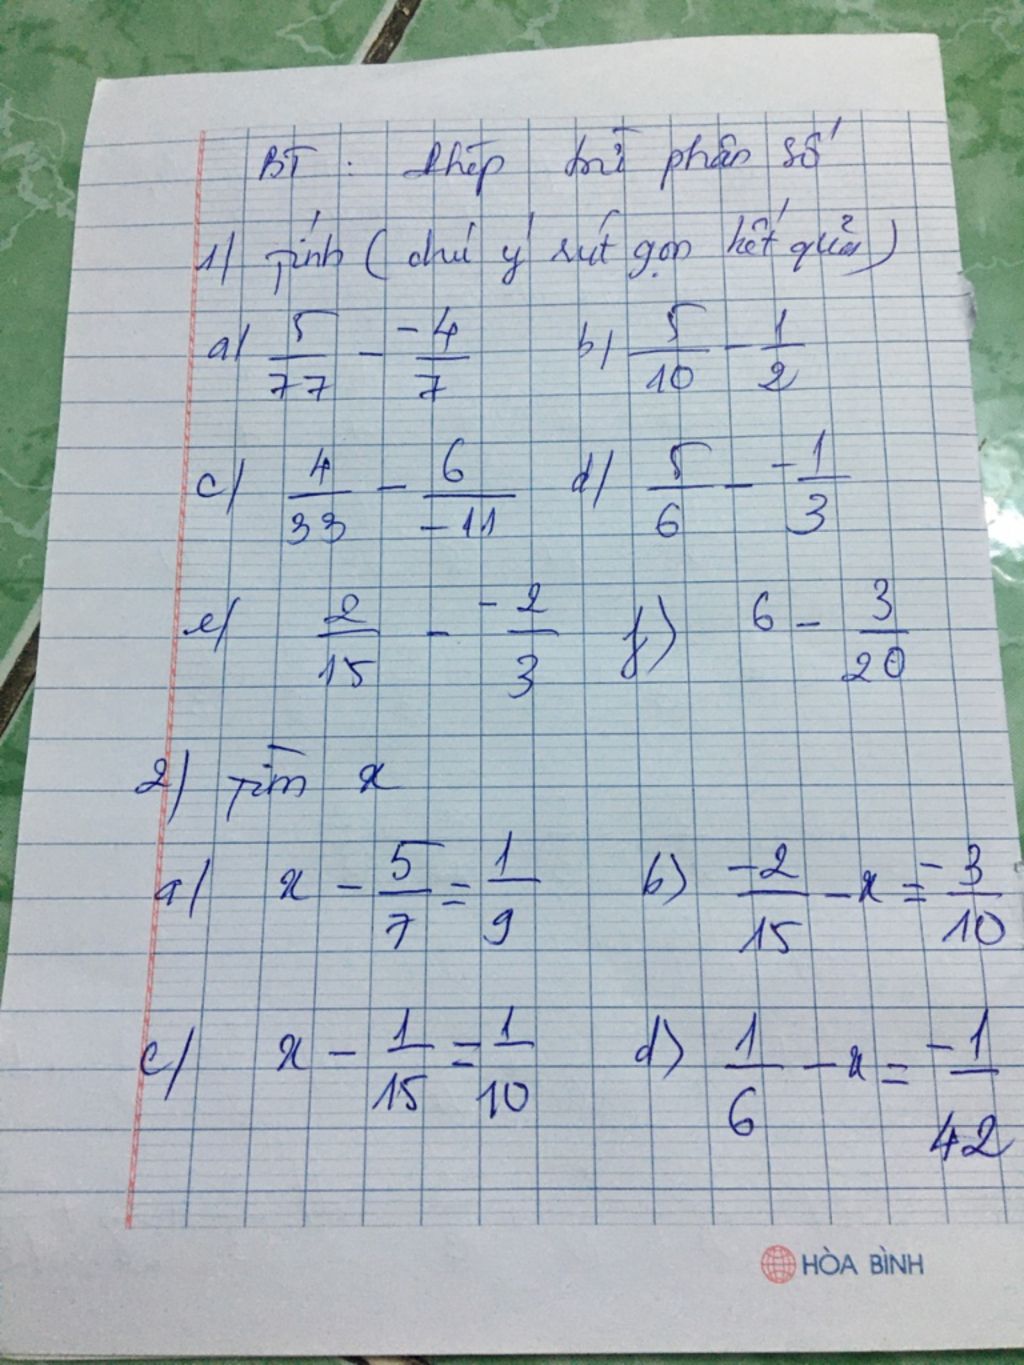 BT : Phép trừ phân số
1/ Tính ( chú ý rút gọn kết quả )
a/ 5/77 - -4/7 b/ 5/10 - 1/2
c/ 4/33 - 6/-11 d/ 5/6 - -1/3
e/ 2/15 - -2/3 f) 6 - 3/20
2/ Tìm x
a/ x - 5/7 = 1/9 b) -2/15 - x = -3/10
c/ x - 1/15 = 1/10 d) 1/6 - x = -1/42
HÒA BÌNH